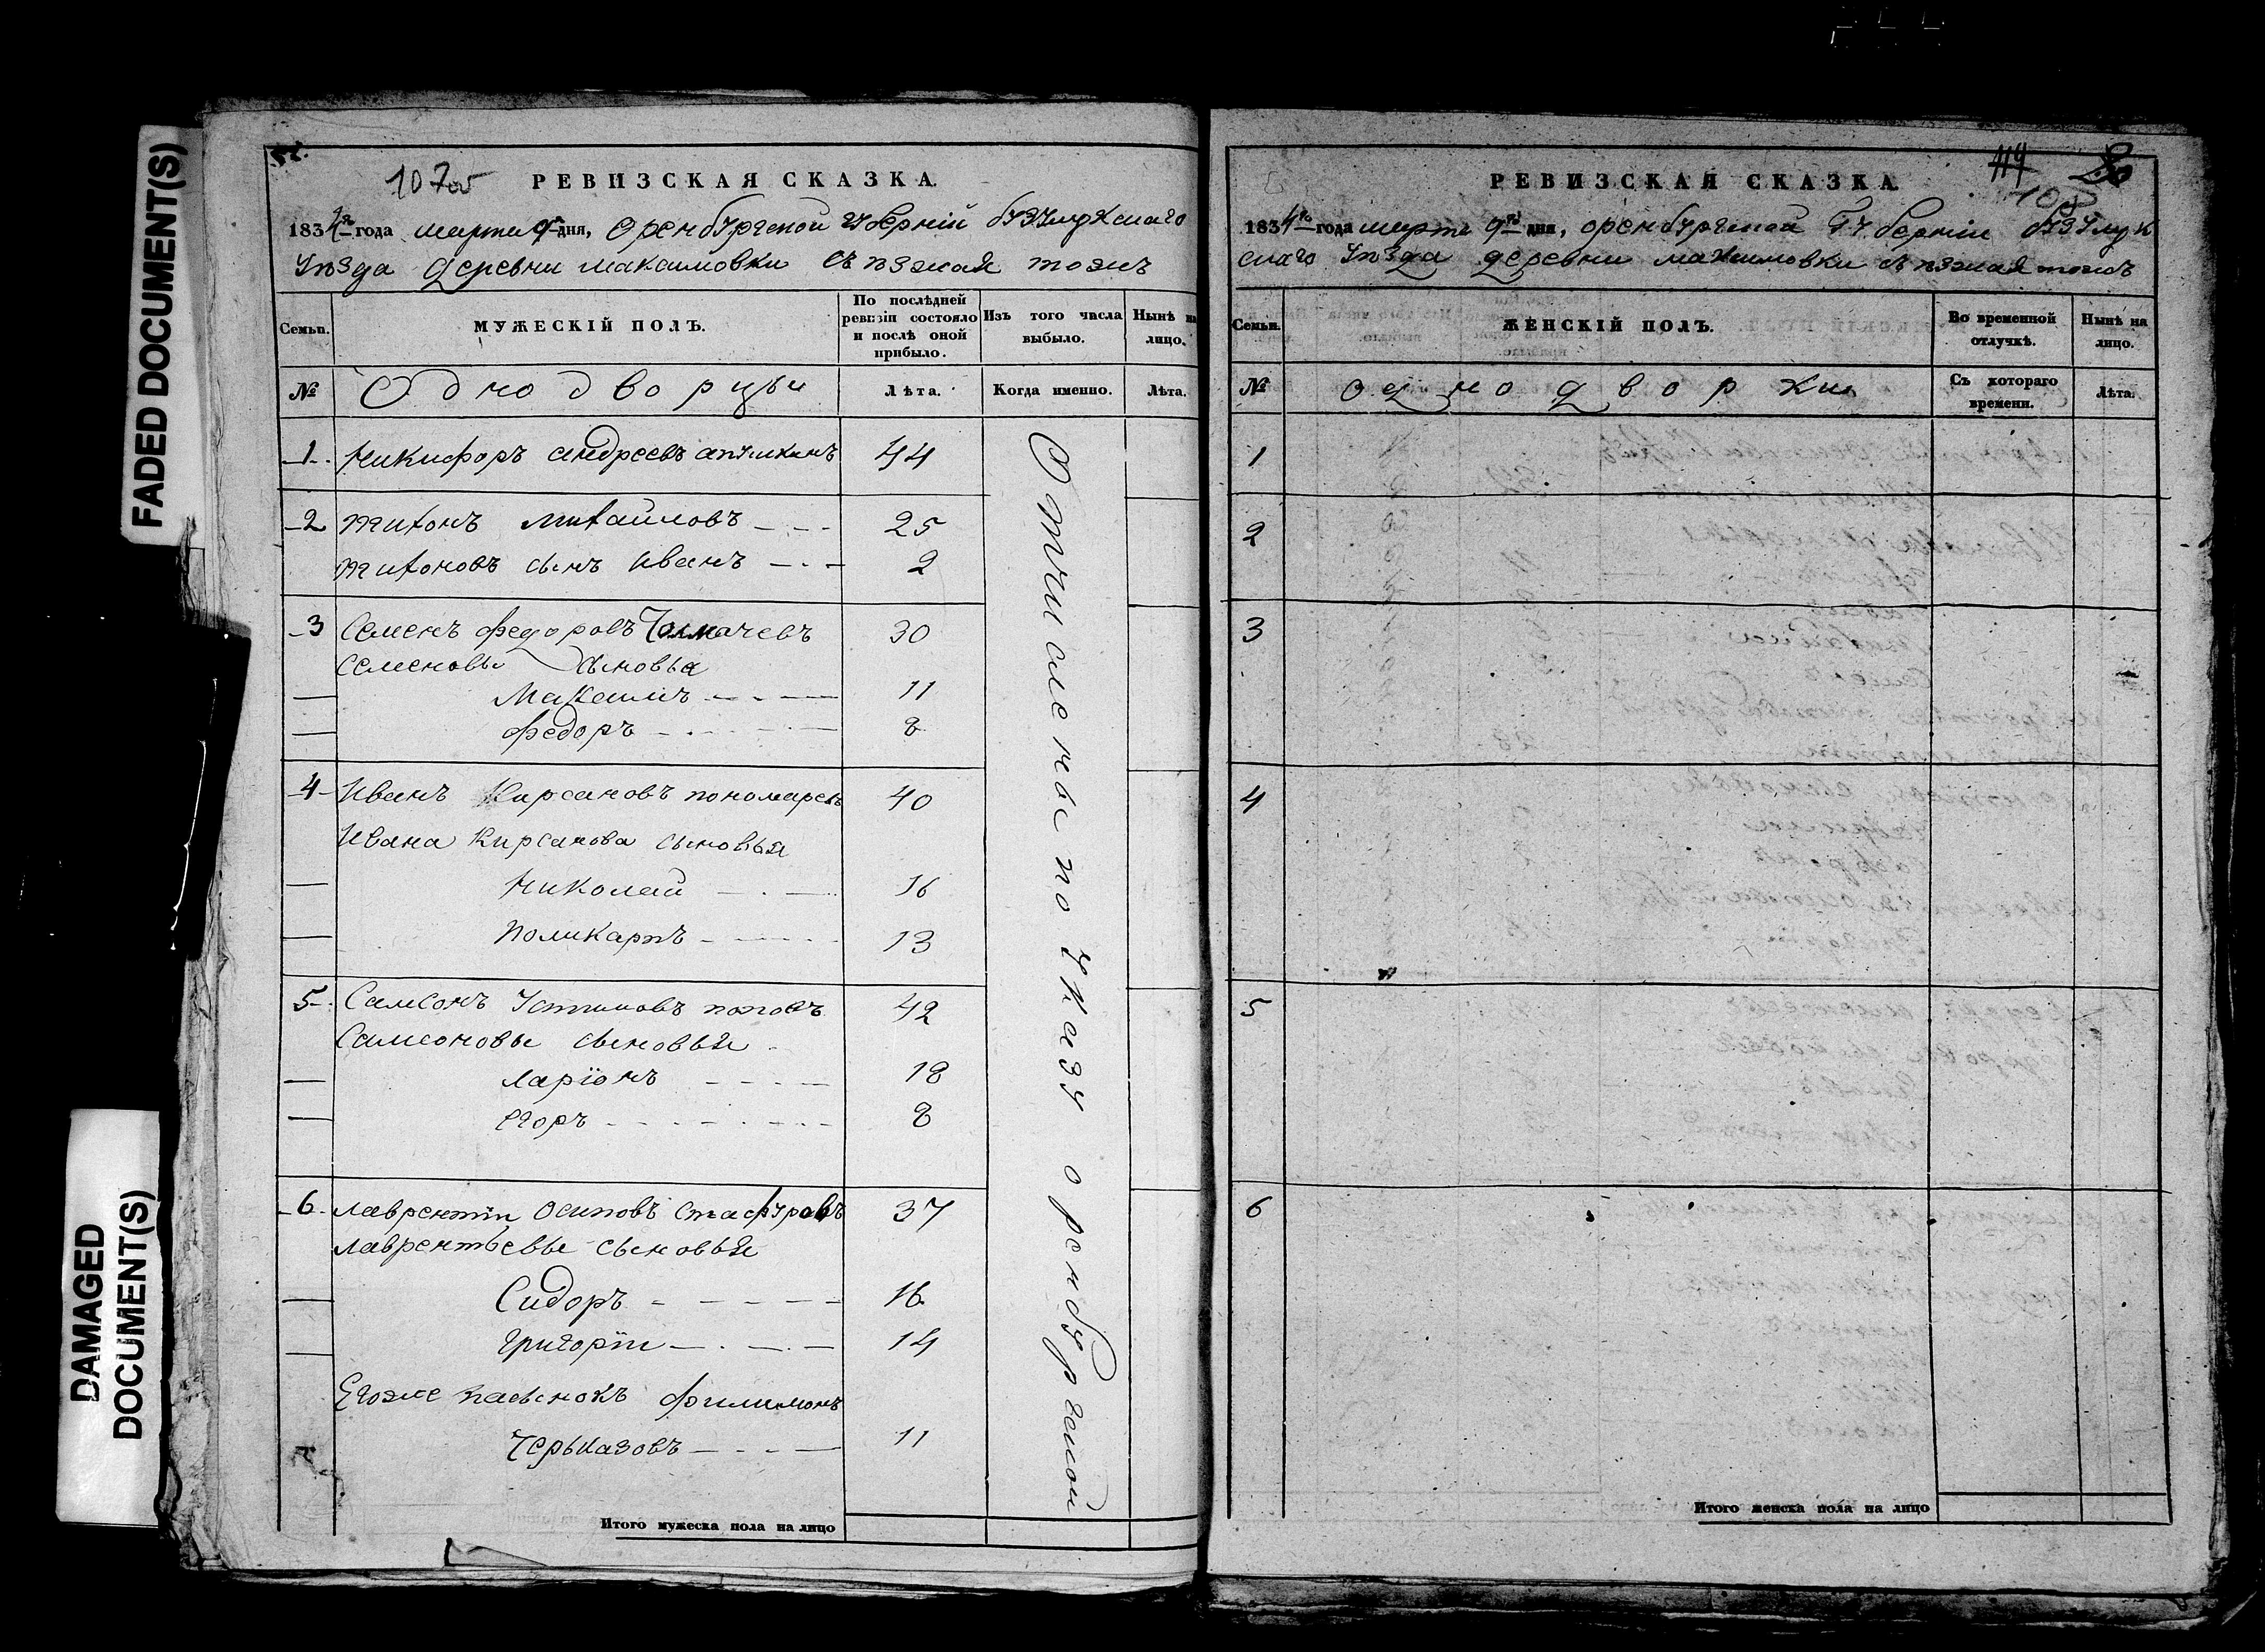 FADED DOCUMENT(S)
DAMAGED
DOCUMENT(S)
107об
РЕВИЗСКАЯ СКАЗКА.
1834го года марта 9го дня, Оренбургской губерніи бузулукскаго
уѣзда деревни максимовки съѣзжая тожъ
Семьи.
МУЖЕСКІЙ ПОЛЪ.
По послѣдней ревизіи состояло и послѣ оной прибыло.
Изъ того числа выбыло.
Нынѣ на лицо.
№
Однодворцы
Лѣта.
Когда именно.
Лѣта.
1 Никифоръ андреевъ 44
2 тихонъ михайловъ 25
тихоновъ сынъ иванъ 2
3 Семенъ федоровъ Толмачевъ 30
семеновы сыновья
Максимъ 11
федоръ 8
4 Иванъ Кирсановъ пономаревъ 40
Ивана Кирсанова сыновья
Николай 16
Поликарпъ 13
5 Самсонъ Устиновъ поповъ 42
Самсоновы сыновья
ларіонъ 18
егоръ 8
6 лаврентіи Осиповъ стафуровъ 37
лаврентьевы сыновья
Сидоръ 16
григоріи 14
Егоже пасынокъ филимонъ
Черказовъ 11
Отчислены по указу оренбургской
Итого мужеска пола на лицо
РЕВИЗСКАЯ СКАЗКА.
119
1834го года марта 9го дня, оренбургской Губерніи бузулук
скаго уѣзда деревни максимовки съѣзжая тожъ
Семьи.
ЖЕНСКІЙ ПОЛЪ.
Во временной отлучкѣ.
Нынѣ на лицо.
№
однодворки
Съ котораго времени.
Лѣта.
1
2
3
4
5
6
Итого женска пола на лицо